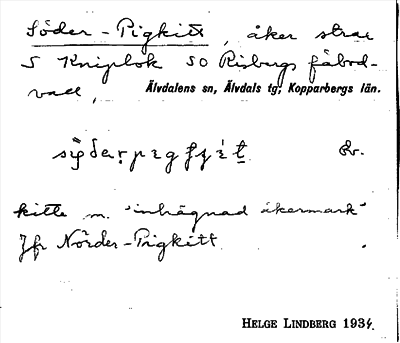 Söder-Pigkitt, åker strax
S Kniplok SO Risbergs fäbod-
vall,
Älvdalens sn, Älvdals tg, Kopparbergs län.
kitte m. "inhägnad åkermark"
Jfr Norder-Pigkitt.
HELGE LINDBERG 1934.